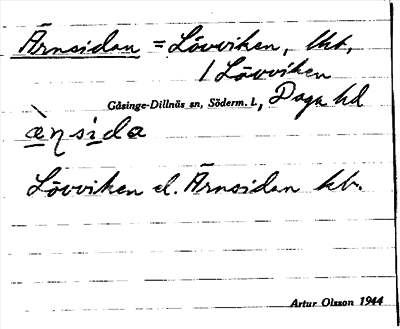 Ärnsidan = Lövviken, lht,
/ Lövviken
Gåsinge-Dillnäs sn, Söderm. l., Daga hd
Lövviken el. Ärnsidan kb.
Artur Olsson 1944